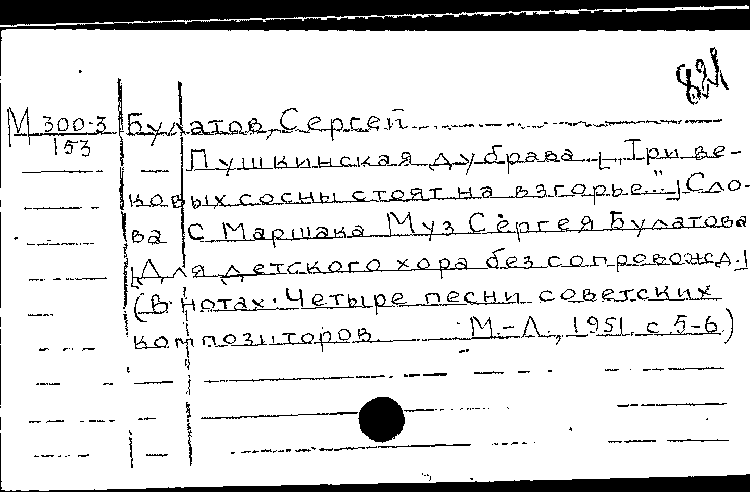 821
М 300-3 Булатов, Сергей
153
Пушкинская дубрава [„Три ве-
ковых сосны стоят на взгорье..."] Сло-
ва С Маршака Муз Сергея Булатова
[Для детского хора без сопровожд.]
(В нотах: Четыре песни советских
композиторов. М.-Л., 1951. с 5-6)